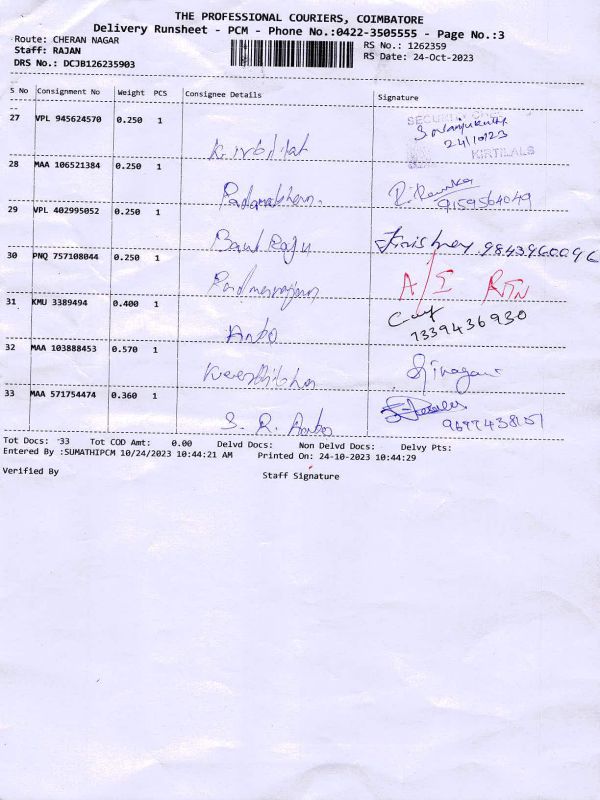 THE PROFESSIONAL COURIERS, COIMBATORE
Delivery Runsheet - PCM - Phone No.:0422-3505555 - Page No.:3
Route: CHERAN NAGAR
Staff: RAJAN
DRS No.: DCJB126235903
RS No.: 1262359
RS Date: 24-Oct-2023
S No Consignment No Weight PCS Consignee Details Signature
27 VPL 945624570 0.250 1
24/10/23
KIRTILALS
28 MAA 106521384 0.250 1
9159564049
29 VPL 402995052 0.250 1
9843960096
30 PNQ 757108044 0.250 1
RTN
31 KMU 3389494 0.400 1 Anbo
7339436930
32 MAA 103888453 0.570 1
33 MAA 571754474 0.360 1 S. R. Anbo
Tot Docs: 33 Tot COD Amt: 0.00 Delvd Docs: Non Delvd Docs: Delvy Pts:
Entered By :SUMATHIPCM 10/24/2023 10:44:21 AM Printed On: 24-10-2023 10:44:29
Verified By Staff Signature